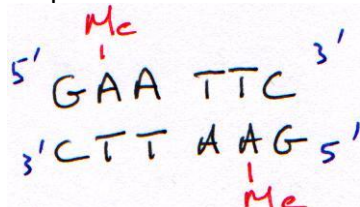 Me
5' GAA TTC 3'
3' CTT AAG 5'
Me